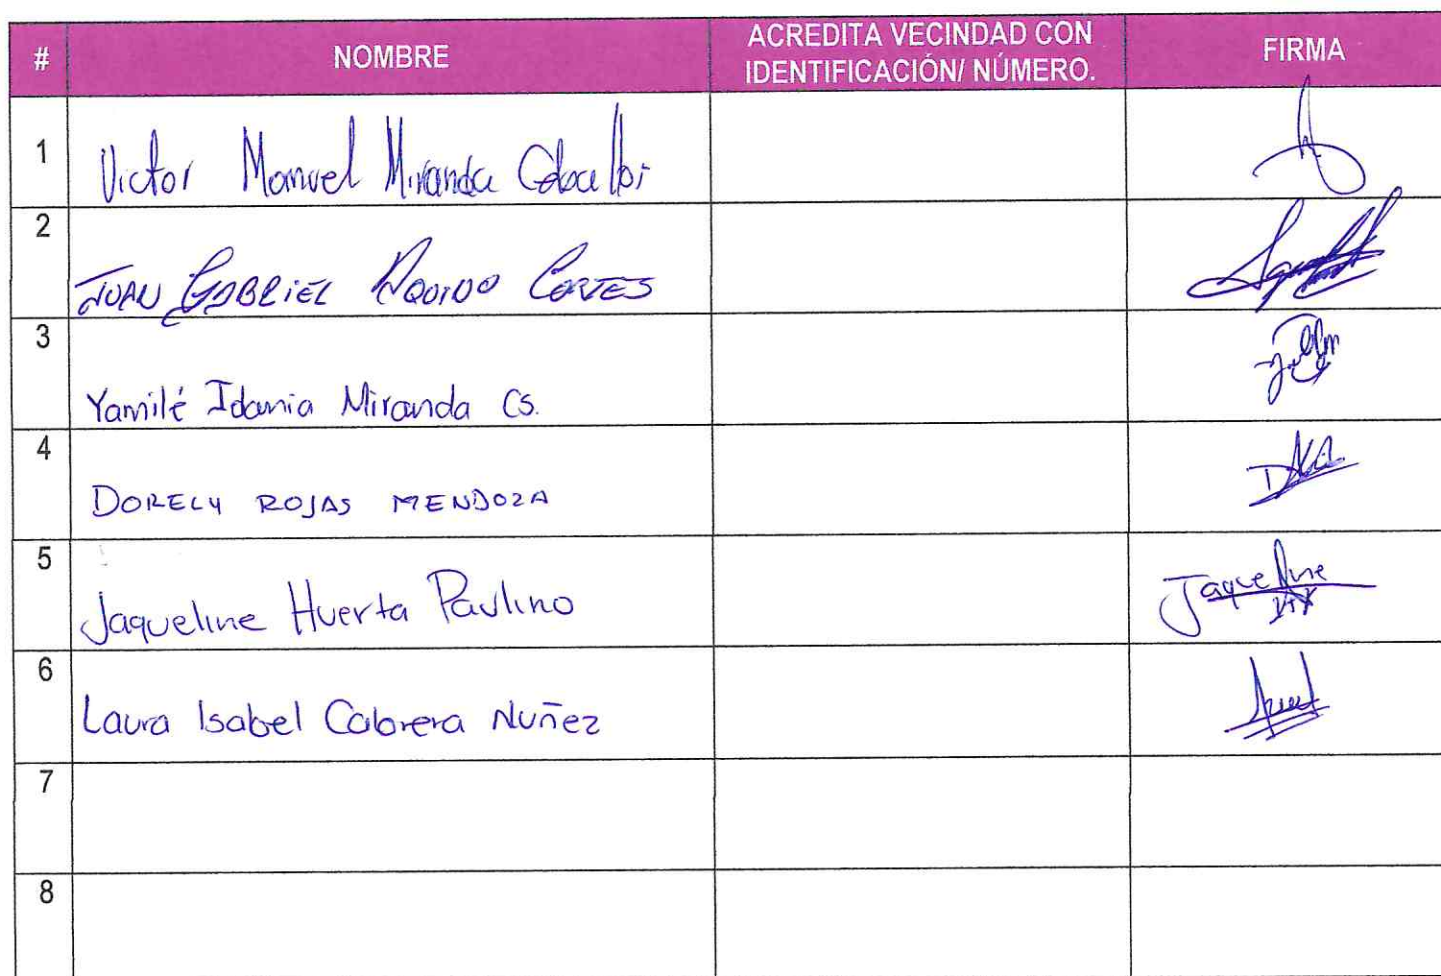 # NOMBRE ACREDITA VECINDAD CON IDENTIFICACIÓN/ NÚMERO. FIRMA
1 Victor Manuel Miranda
2 JUAN GABRIEL AQUINO CORTES
3 Yamilé Idania Miranda Cs.
4 DORELY ROJAS MENDOZA
5 Jaqueline Huerta Paulino Jaqueline
6 Laura Isabel Cabrera Nuñez
7
8